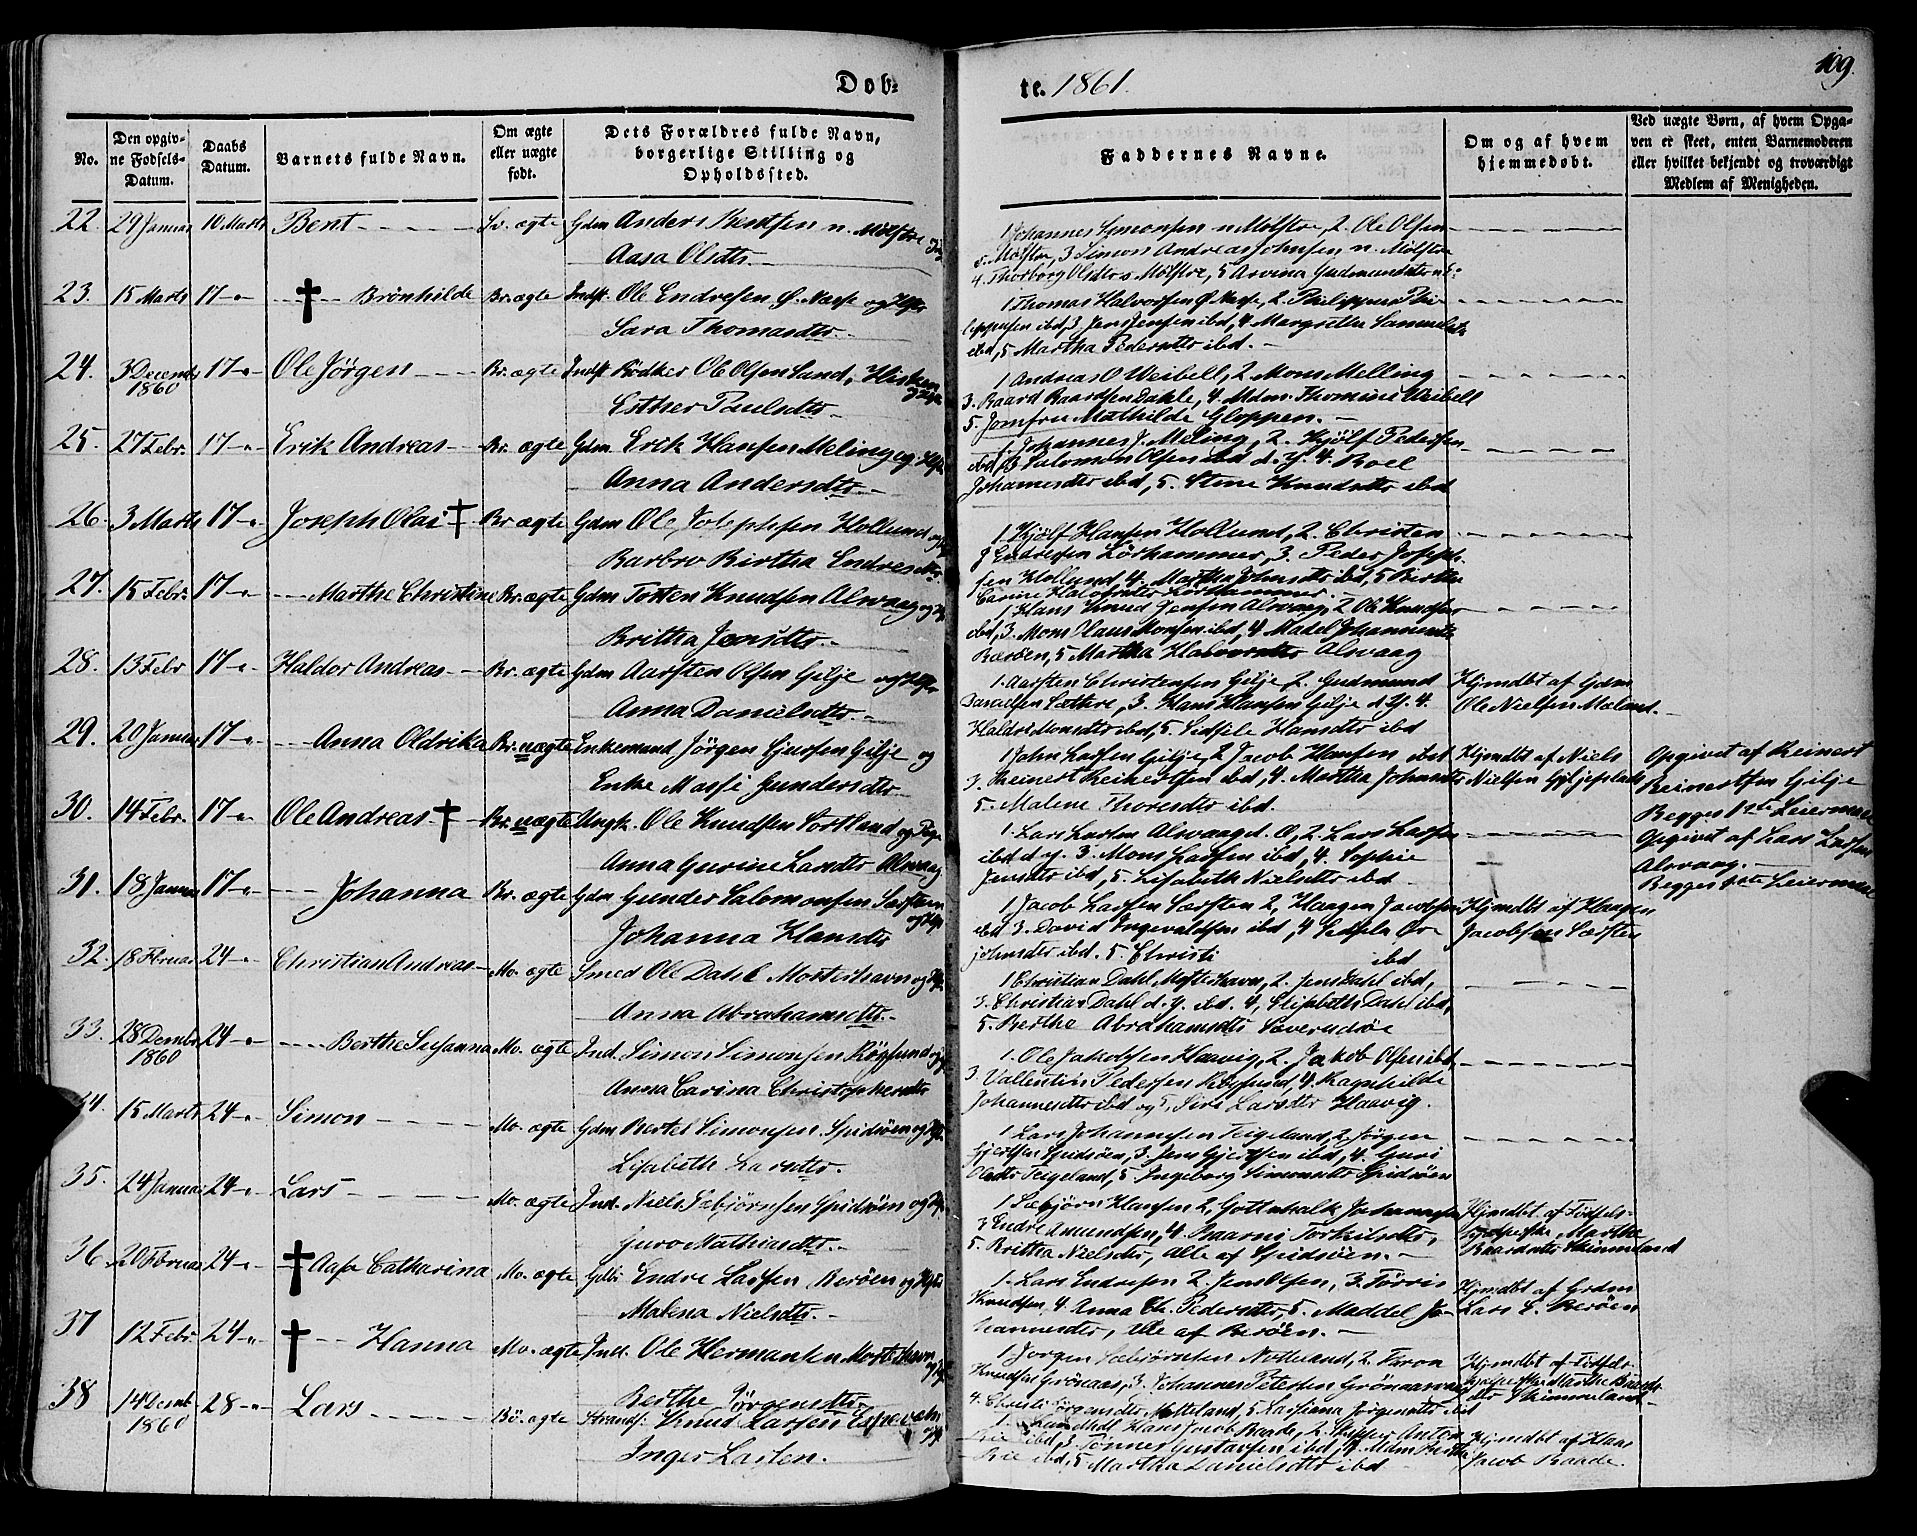 Dob-
te. 1861.
109.
No.
Den opgiv-
ne Fødsels-
Datum.
Daabs
Datum.
Barnets fulde Navn.
Om ægte
eller uægte
født.
Dets Forældres fulde Navn,
borgerlige Stilling og
Opholdssted.
Faddernes Navne.
Om og af hvem
hjemmedøbt.
Ved uægte Børn, af hvem Opga-
ven er skeet, enten Barnemoderen
eller hvilket bekjendt og troværdigt
Medlem af Menigheden.
22. 29 Januar 10 Marts Bent Sv. ægte Gdm Anders Bentsen n. Mølstre og
Aasa Olsdtr.
1 Johannes Simonsen n Mølstre, 2. Ole Olsen
ø. Mølstre, 3 Simon Andreas Johnsen n. Mølstre
4. Thorborg Olsdtr ø Mølstre, 5 Arvina Gudmundsdtr
23. 15 Marts 17 Brønhilde Br. ægte Indst. Ole Endresen Ø. Næsse og Hst
Sara Thomasdtr.
1 Thomas Halvorsen Ø Næsse, 2. Philippus Phi-
lippusen ibd, 3 Jens Jensen ibd, 4 Margrethe Samuelsdtr
ibd, 5 Martha Pedersdtr ibd.
24. 3 Decemb 1860 17 Ole Jørgen Br. ægte Indst Bødker Ole Olsen Sand, Hisken
Esther Paulsdtr
1 Andreas O Weibell, 2. Mons Melling
3. Baard Baardsen Dahle, 4. Mdm. Thomine Weibell
5. Jomfru Mathilde Gloppen.
25. 27 Febr. 17 Erik Andreas Br. ægte Gdm Erik Hansen Meling og Hst
Anna Andersdtr.
1. Johannes J. Meling, 2. Kjølf Pedersen
ibd, 3 Salomon Olsen ibd d. Y. 4. Boel
Johannesdtr ibd, 5. Stine Knudsdtr ibd
26. 3 Marts 17 Joseph Olai Br ægte Gdm Ole Josephsen Hollund og
Barbro Birtha Endresdtr
1. Kjølf Hansen Hollund, 2. Christen
J Endresen Lørhammer, 3. Peder Joseph-
sen Hollund 4. Martha Johnsdtr ibd, 5 Birthe
Carine Halvorsdtr Lørhammer.
27. 15 Febr. 17 Marthe Christine Br. ægte Gdm Tosten Knudsen Alvaag og
Brittha Jensdtr.
1. Hans Knud Jensen Alvaag, 2 Ole Knudsen
ibd, 3. Mons Olaus Monsen ibd, 4 Madel Johannesdtr
Bærøen, 5 Martha Halvorsdtr Alvaag
28. 13 Febr 17 Haldor Andreas Br. ægte Gdm Aarsten Olsen Gilje og Hst
Anna Danielsdtr.
1. Aarsten Christensen Gilje 2. Gudmund
Danielsen Sæthre, 3. Hans Hansen Gilje d. Y. 4.
Haldri Monsdtr ibd, 5. Sidsele Hansdtr ibd
Hjmdbt af Gdm
Ole Nielsen Maland.
29. 20 Januar 17 Anna Oldrika Br. uægte Enkemand Jørgen Sjursen Gilje og
Enke Massi Gundersdtr
1 John Larsen Gilje, 2 Jacob Hansen ibd
3. Reinert Reinertsen ibd, 4. Martha Johansdtr
5. Malene Thoresdtr ibd.
Hjmdbt af Niels
Nielsen Giljeplads
Opgivet af Reinert
Reinertsen Gilje
Begges 1ste Leiermaal
30. 14 Febr. 17 Ole Andreas Br. uægte Ungk. Ole Knudsen Sortland og Pige
Anna Gurine Larsdtr Alvaag
1. Lars Larsen Alvaag d. Æ, 2. Lars Larsen
ibd d. y. 3. Mons Larsen ibd, 4. Sophie
Jensdtr ibd, 5. Lisabeth Nielsdtr ibd
Opgivet af Lars Larsen
Alvaag.
Begges 1ste Leiermaal
31. 18 Januar 17 Johanna Br. ægte Gdm Gunder Salomonsen Særsten
Johanna Hansdtr
1 Jacob Larsen Særsten 2, Haagen Jacobsen
ibd 3. David Ingevaldsen ibd, 4 Sidsela
Johnsdtr ibd. 5. Christi ibd
Hjmdbt af Haagen
Jacobsen Særsten
32. 18 Februar 24 Christian Andreas Mo. ægte Smed Ole Dahl Mosterhavn og Hst
Anna Abrahamsdtr.
1 Christian Dahl Mosterhavn, 2. Jens Dahl ibd,
3. Christian Dahl d. Y. ibd. 4, Elisabeth Dahl ibd,
5. Berthe Abrahamsdtr
33. 28 Decembr 1860 24 Berthe Susanna Mo. ægte Ind. Simon Simonsen Røgsund og
Anna Carina Christophersdtr
1. Ole Jakobsen Haavig, 2. Jakob Olsen ibd
3. Vallentin Pedersen Røgsund, 4. Ragnhilde
Johannesdtr ibd og 5, Siri Larsdtr Haavig.
34. 15 Marts 24 Simon Mo. ægte Gdm Bertel Simonsen Spidsøen og Hst
Lisabeth Larsdtr.
1. Lars Johannesen Teigeland, 2. Jørgen
Gjertsen Spidsøen, 3. Jens Gjertsen ibd, 4. Guri
Olsdtr Teigeland, 5. Ingeborg Simonsdtr Spidsøen
35. 24 Januar 24 Lars Mo. ægte Ind. Niels Sæbjørnsen Spidsøen og
Guro Mathiasdtr.
1. Sæbjørn Hansen 2, Gottskalk Johannesen
3 Endre Amundsen, 4. Baarni Torkilsdtr,
5. Brittha Nielsdtr, alle af Spidsøen.
Hjmdbt. af Fødsels-
hjælperske Marthe
Baardsdtr Skimmeland
36. 20 Februar 24 Aase Catharina Mo. ægte Gdbr Endre Larsen Berøen og Hst
Malena Nielsdtr.
1. Lars Endresen 2. Jens Olsen, 3. Torris
Knudsen, 4. Anna Ch. Pedersdtr, 5. Maddel Jo-
hannesdtr, alle af Berøen.
Hjmdbt af Grdm
Lars E. Berøen
37 12 Febr 24 Hanna Mo. ægte Ind. Ole Hermansen Mosterhavn
Berthe Jørgensdtr.
1 Jørgen Sæbjørnsen Notteland, 2. Faron
Knudsen Grønaas, 3. Johannes Petersen Grønaasvaag
4. Christi Jørgensdtr Notteland, 5. Larsiana Jørgensdtr ibd
Hjmdbt af Fødsels-
hjælperske Marthe Baards-
dtr Skimmeland
38 14 Decemb 1860 28 Lars Bø. ægte Strands. Knud Larsen Espevær
Inger Larsen.
1. Landhdl Hans Jacob Baade, 2. Skipper Anton
Rie ibd, 3. Tønnes Gustavsen ibd, 4. Mdm Berthe
Rie ibd, 5 Martha Danielsdtr ibd
Hjmdbt af Hans
Jacob Baade.